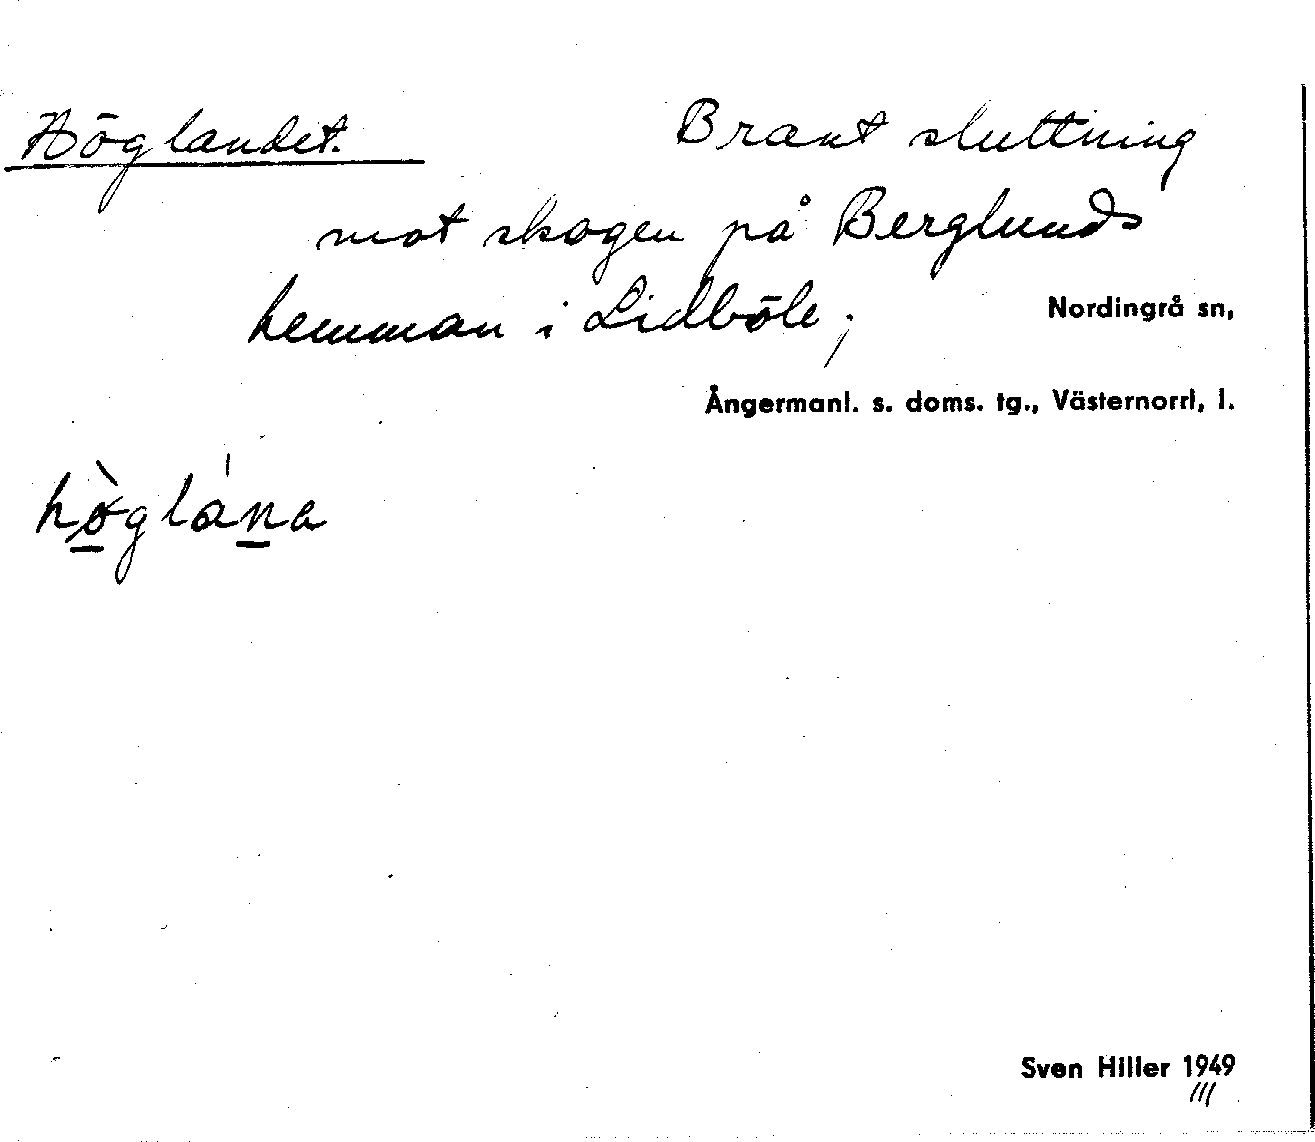 Höglandet. Brant sluttning
mot skogen på Berglunds
hemman i Lidböle; Nordingrå sn,
Ångermanl. s. doms. tg., Västernorrl, l.
hø̱̀gláṉa
Sven Hiller 1949